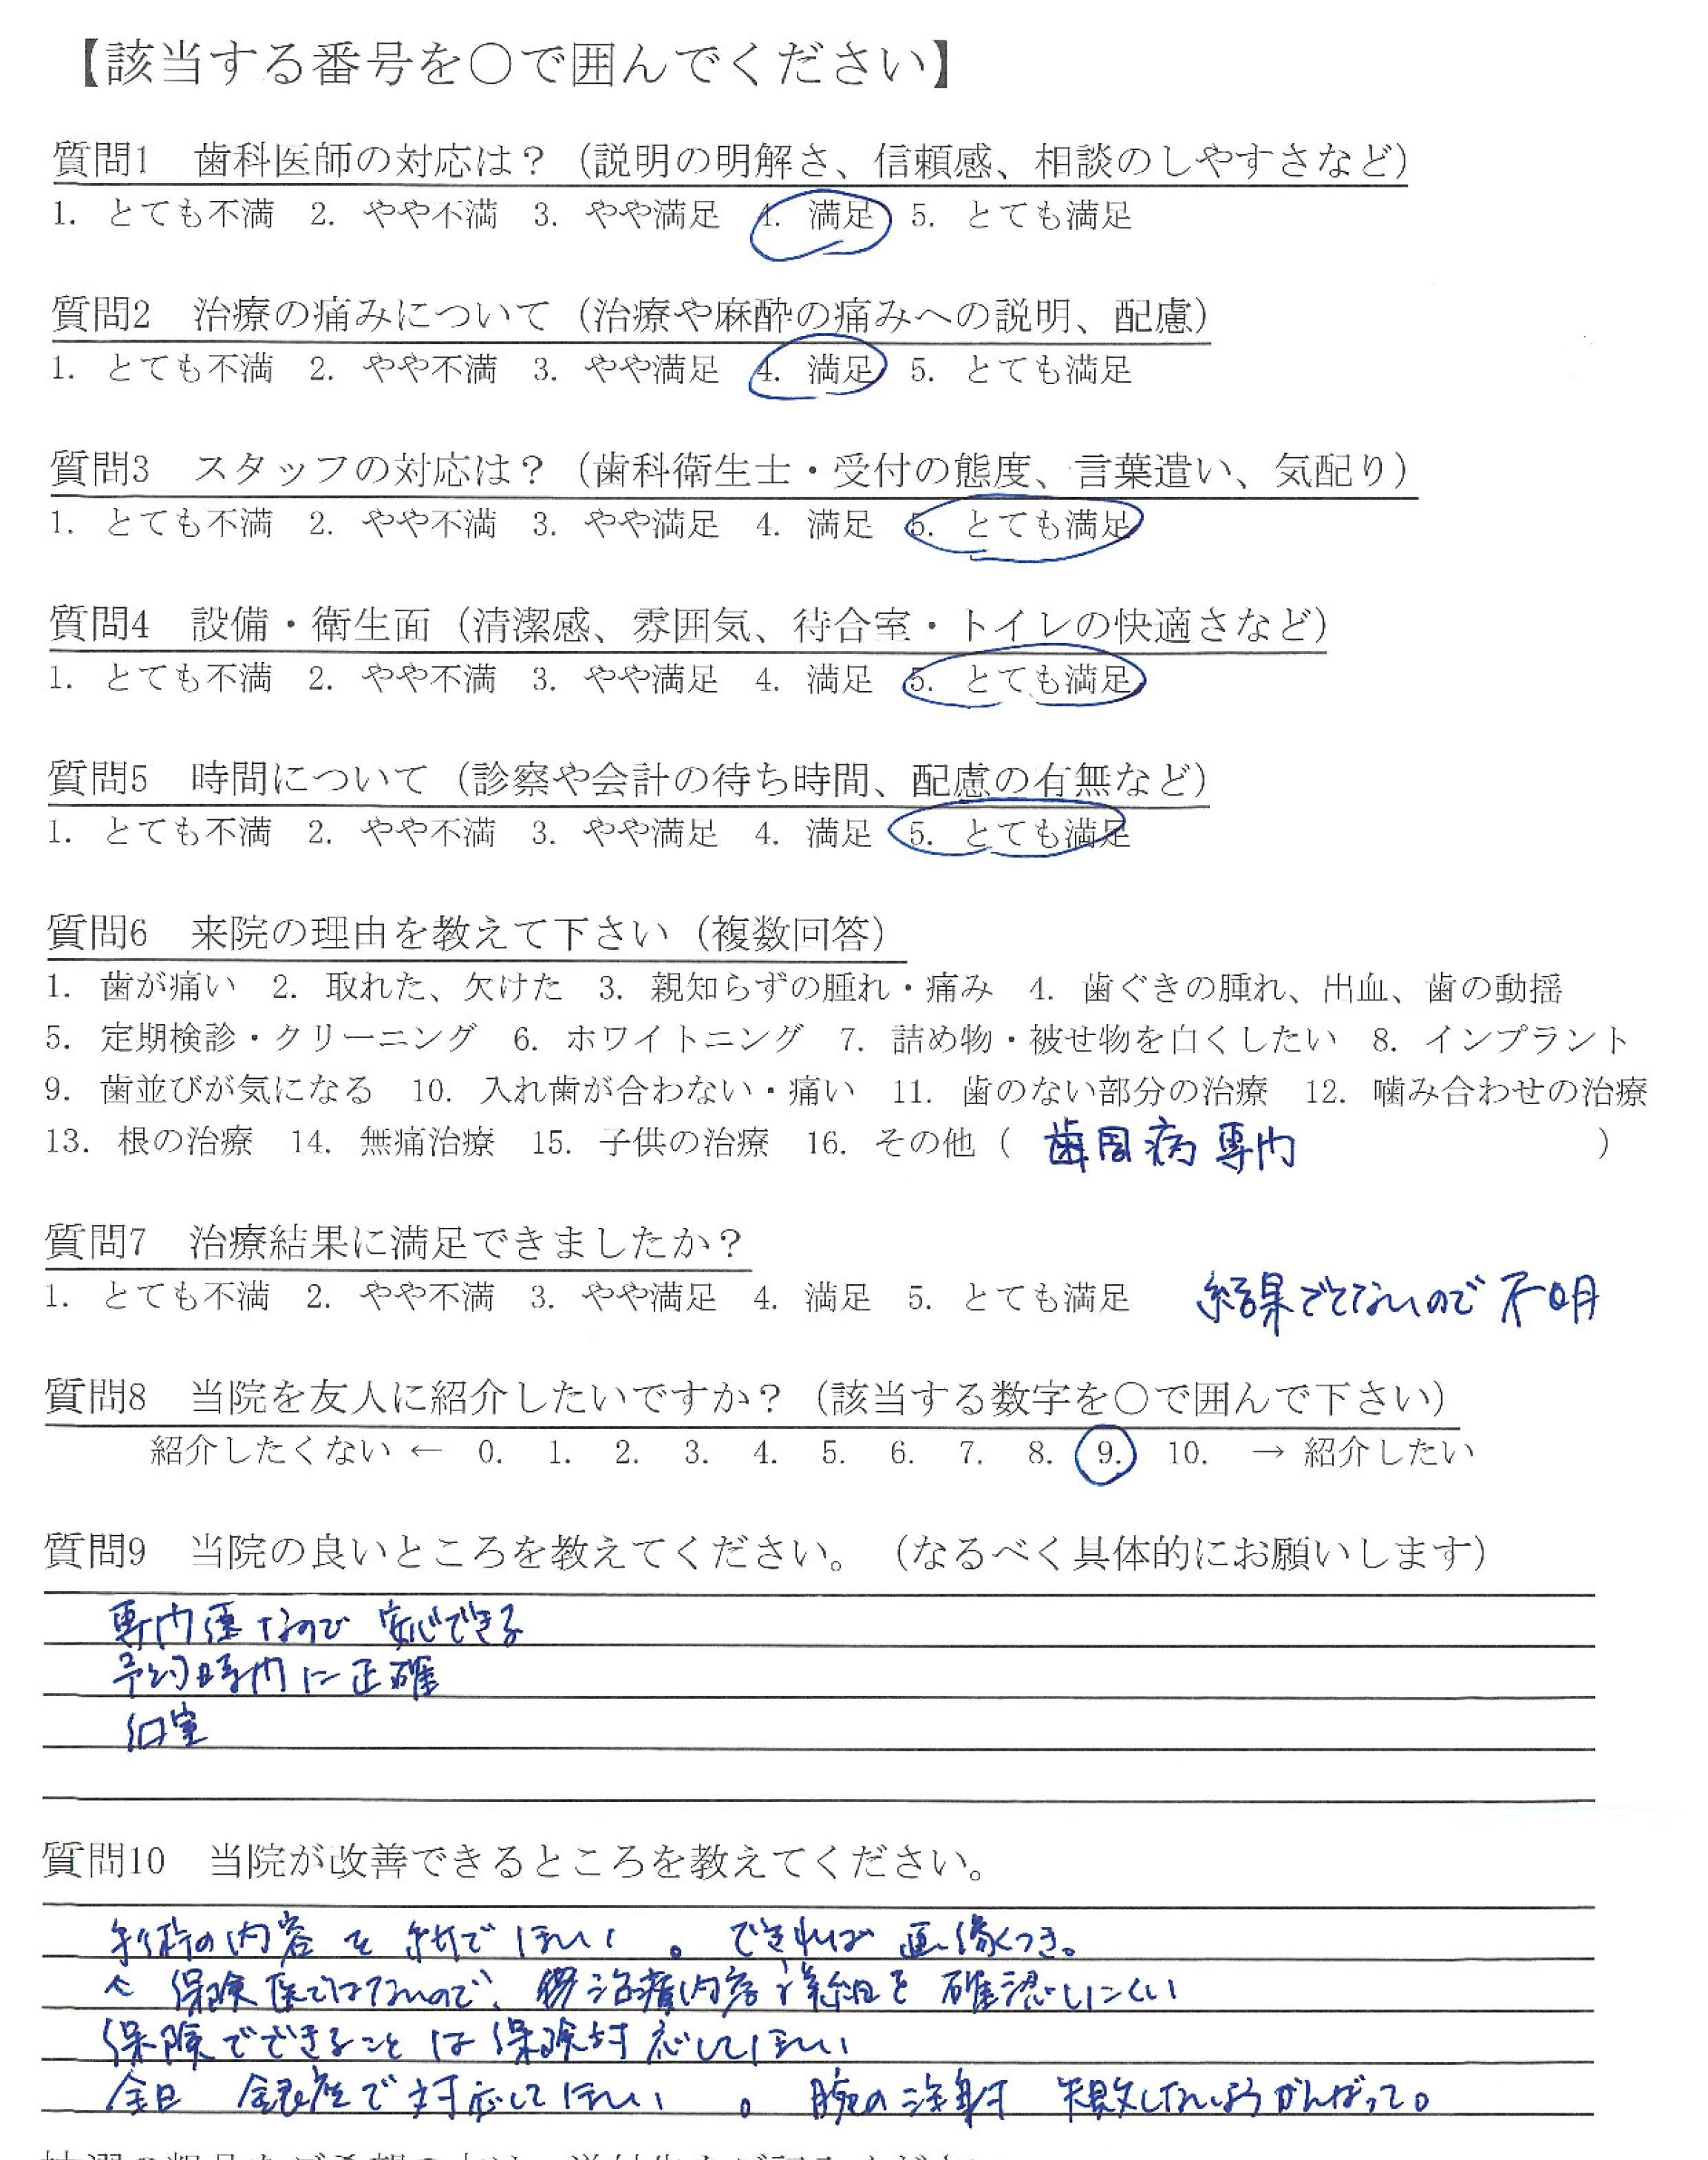 【該当する番号を〇で囲んでください】
質問1　歯科医師の対応は？（説明の明解さ、信頼感、相談のしやすさなど）
1. とても不満　2. やや不満　3. やや満足　4. 満足　5. とても満足
質問2　治療の痛みについて（治療や麻酔の痛みへの説明、配慮）
1. とても不満　2. やや不満　3. やや満足　4. 満足　5. とても満足
質問3　スタッフの対応は？（歯科衛生士・受付の態度、言葉遣い、気配り）
1. とても不満　2. やや不満　3. やや満足　4. 満足　5. とても満足
質問4　設備・衛生面（清潔感、雰囲気、待合室・トイレの快適さなど）
1. とても不満　2. やや不満　3. やや満足　4. 満足　5. とても満足
質問5　時間について（診察や会計の待ち時間、配慮の有無など）
1. とても不満　2. やや不満　3. やや満足　4. 満足　5. とても満足
質問6　来院の理由を教えて下さい（複数回答）
1. 歯が痛い　2. 取れた、欠けた　3. 親知らずの腫れ・痛み　4. 歯ぐきの腫れ、出血、歯の動揺
5. 定期検診・クリーニング　6. ホワイトニング　7. 詰め物・被せ物を白くしたい　8. インプラント
9. 歯並びが気になる　10. 入れ歯が合わない・痛い　11. 歯のない部分の治療　12. 噛み合わせの治療
13. 根の治療　14. 無痛治療　15. 子供の治療　16. その他（ 歯周病専門 ）
質問7　治療結果に満足できましたか？
1. とても不満　2. やや不満　3. やや満足　4. 満足　5. とても満足　結果でてないので不明
質問8　当院を友人に紹介したいですか？（該当する数字を〇で囲んで下さい）
紹介したくない ← 0. 1. 2. 3. 4. 5. 6. 7. 8. 9. 10. → 紹介したい
質問9　当院の良いところを教えてください。（なるべく具体的にお願いします）
専門医なので 安心できる
予約時間に正確
個室
質問10　当院が改善できるところを教えてください。
手術の内容を紙でほしい。できれば画像つき。
保険医ではないので、治療内容詳細を確認しにくい
保険でできることは保険対応してほしい
全日 銀座で対応してほしい。腕の注射 失敗しないようがんばって。